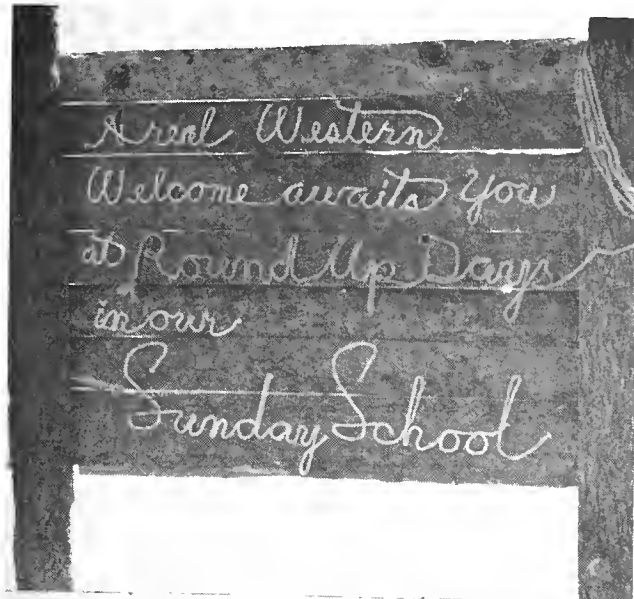 A real Western
Welcome awaits You
at Round Up Days
in our
Sunday School